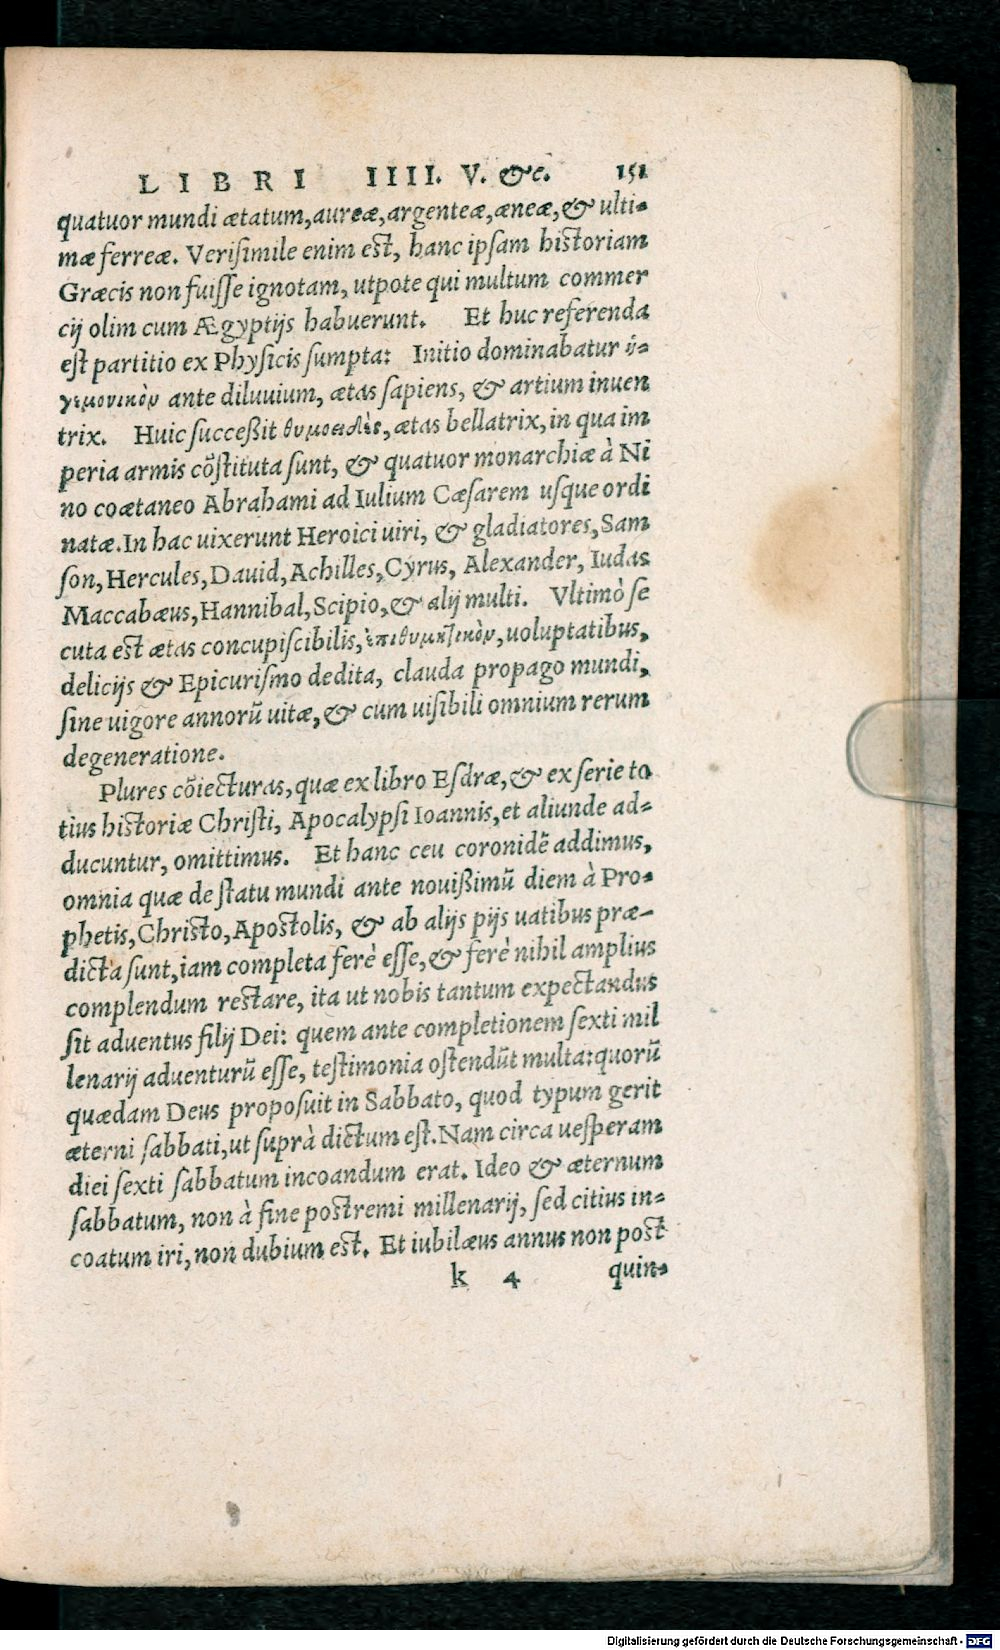 LIBRI IIII. V. &c. 151
quatuor mundi ætatum, aureæ, argenteæ, æneæ, & ulti-
mæ ferreæ. Verisimile enim est, hanc ipsam historiam
Græcis non fuisse ignotam, utpote qui multum commer
cij olim cum Ægyptijs habuerunt. Et huc referenda
est partitio ex Physicis sumpta: Initio dominabatur ἡ-
γεμονικὸν ante diluuium, ætas sapiens, & artium inuen
trix. Huic succeßit θυμοειδὲς, ætas bellatrix, in qua im
peria armis cõstituta sunt, & quatuor monarchiæ à Ni
no coætaneo Abrahami ad Iulium Cæsarem usque ordi
natæ. In hac uixerunt Heroici uiri, & gladiatores, Sam
son, Hercules, Dauid, Achilles, Cyrus, Alexander, Iudas
Maccabæus, Hannibal, Scipio, & alij multi. Vltimò se
cuta est ætas concupiscibilis, ἐπιθυμητικὸν, uoluptatibus,
delicijs & Epicurismo dedita, clauda propago mundi,
sine uigore annorũ uitæ, & cum uisibili omnium rerum
degeneratione.
Plures cõiecturas, quæ ex libro Esdræ, & ex serie to
tius historiæ Christi, Apocalypsi Ioannis, et aliunde ad-
ducuntur, omittimus. Et hanc ceu coronidẽ addimus,
omnia quæ de statu mundi ante nouißimũ diem à Pro-
phetis, Christo, Apostolis, & ab alijs pijs uatibus præ-
dicta sunt, iam completa ferè esse, & ferè nihil amplius
complendum restare, ita ut nobis tantum expectandus
sit aduentus filij Dei: quem ante completionem sexti mil
lenarij aduenturũ esse, testimonia ostendũt multa: quorũ
quædam Deus proposuit in Sabbato, quod typum gerit
æterni sabbati, ut suprà dictum est. Nam circa uesperam
diei sexti sabbatum incoandum erat. Ideo & æternum
sabbatum, non à fine postremi millenarij, sed citius in-
coatum iri, non dubium est. Et iubilæus annus non post
k 4 quin-
Digitalisierung gefördert durch die Deutsche Forschungsgemeinschaft - DFG